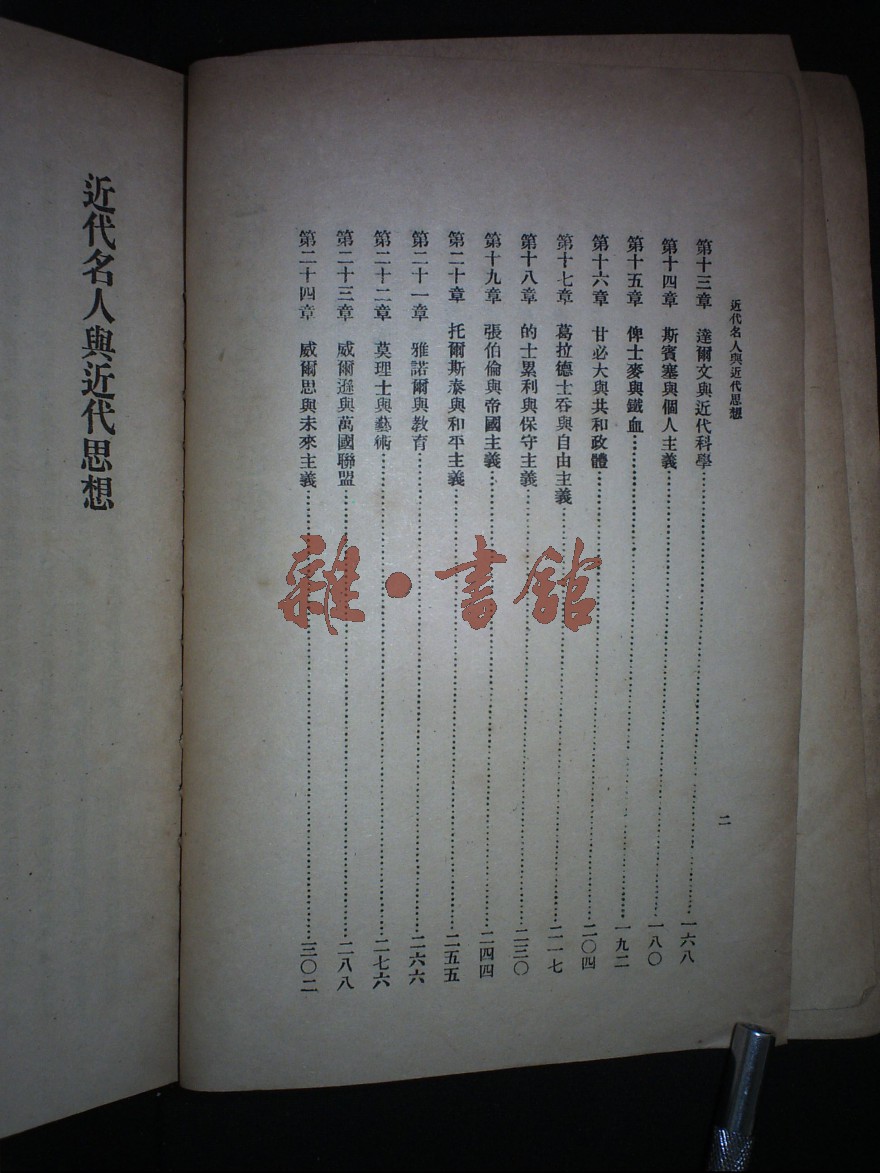 近代名人與近代思想
二
第十三章　達爾文與近代科學……一六八
第十四章　斯賓塞與個人主義……一八〇
第十五章　俾士麥與鐵血……一九二
第十六章　甘必大與共和政體……二〇四
第十七章　葛拉德士吞與自由主義……二一七
第十八章　的士累利與保守主義……二三〇
第十九章　張伯倫與帝國主義……二四四
第二十章　托爾斯泰與和平主義……二五五
第二十一章　雅諾爾與教育……二六六
第二十二章　莫理士與藝術……二七六
第二十三章　威爾遜與萬國聯盟……二八八
第二十四章　威爾思與未來主義……三〇二
近代名人與近代思想
雜·書館